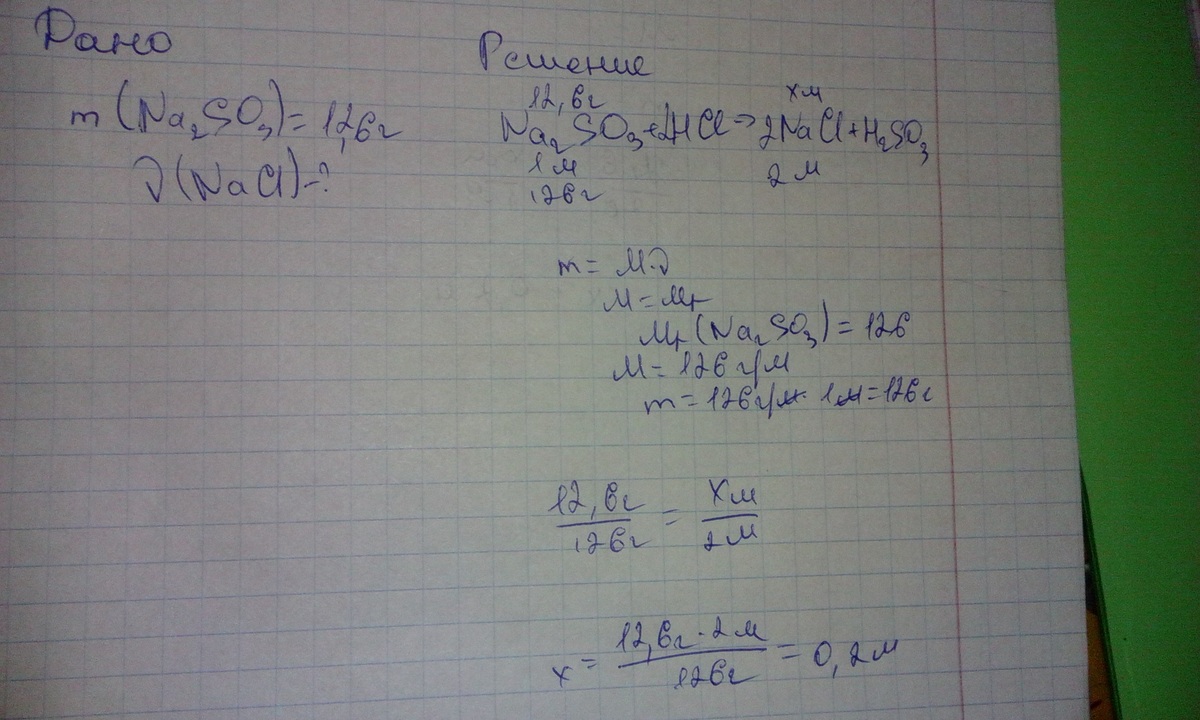 Дано
m(Na₂SO₃)=12,6г
ν(NaCl)-?
Решение
12,6г хм
Na₂SO₃+2HCl=>2NaCl+H₂SO₃
1м 2м
126г
m= M·ν
M=Mr
Mr(Na₂SO₃)=126
M=126г/м
m=126г/м·1м=126г
12,6г/126г = Хм/2м
x= 12,6г·2м/126г = 0,2м